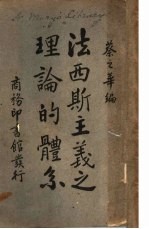 St. Mary's Library
蔡之華編
法西斯主義之
理論的體系
商務印書館發行